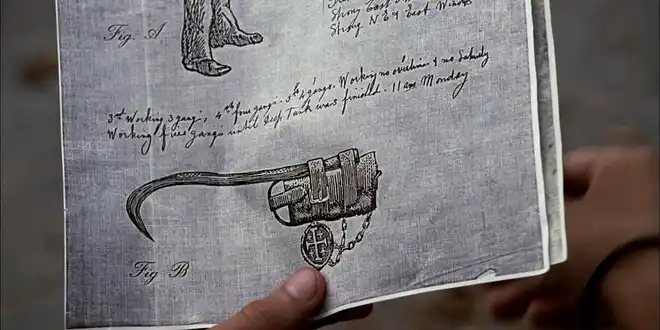 Strong East
Strong N E & East Winds
Fig. A
3rd Working 3 gangs, 4th four gangs. 5th 4 gangs. Working no overtime & no Saturday
Working five gangs until Deep Tank was finished. 11 am Monday
Fig B